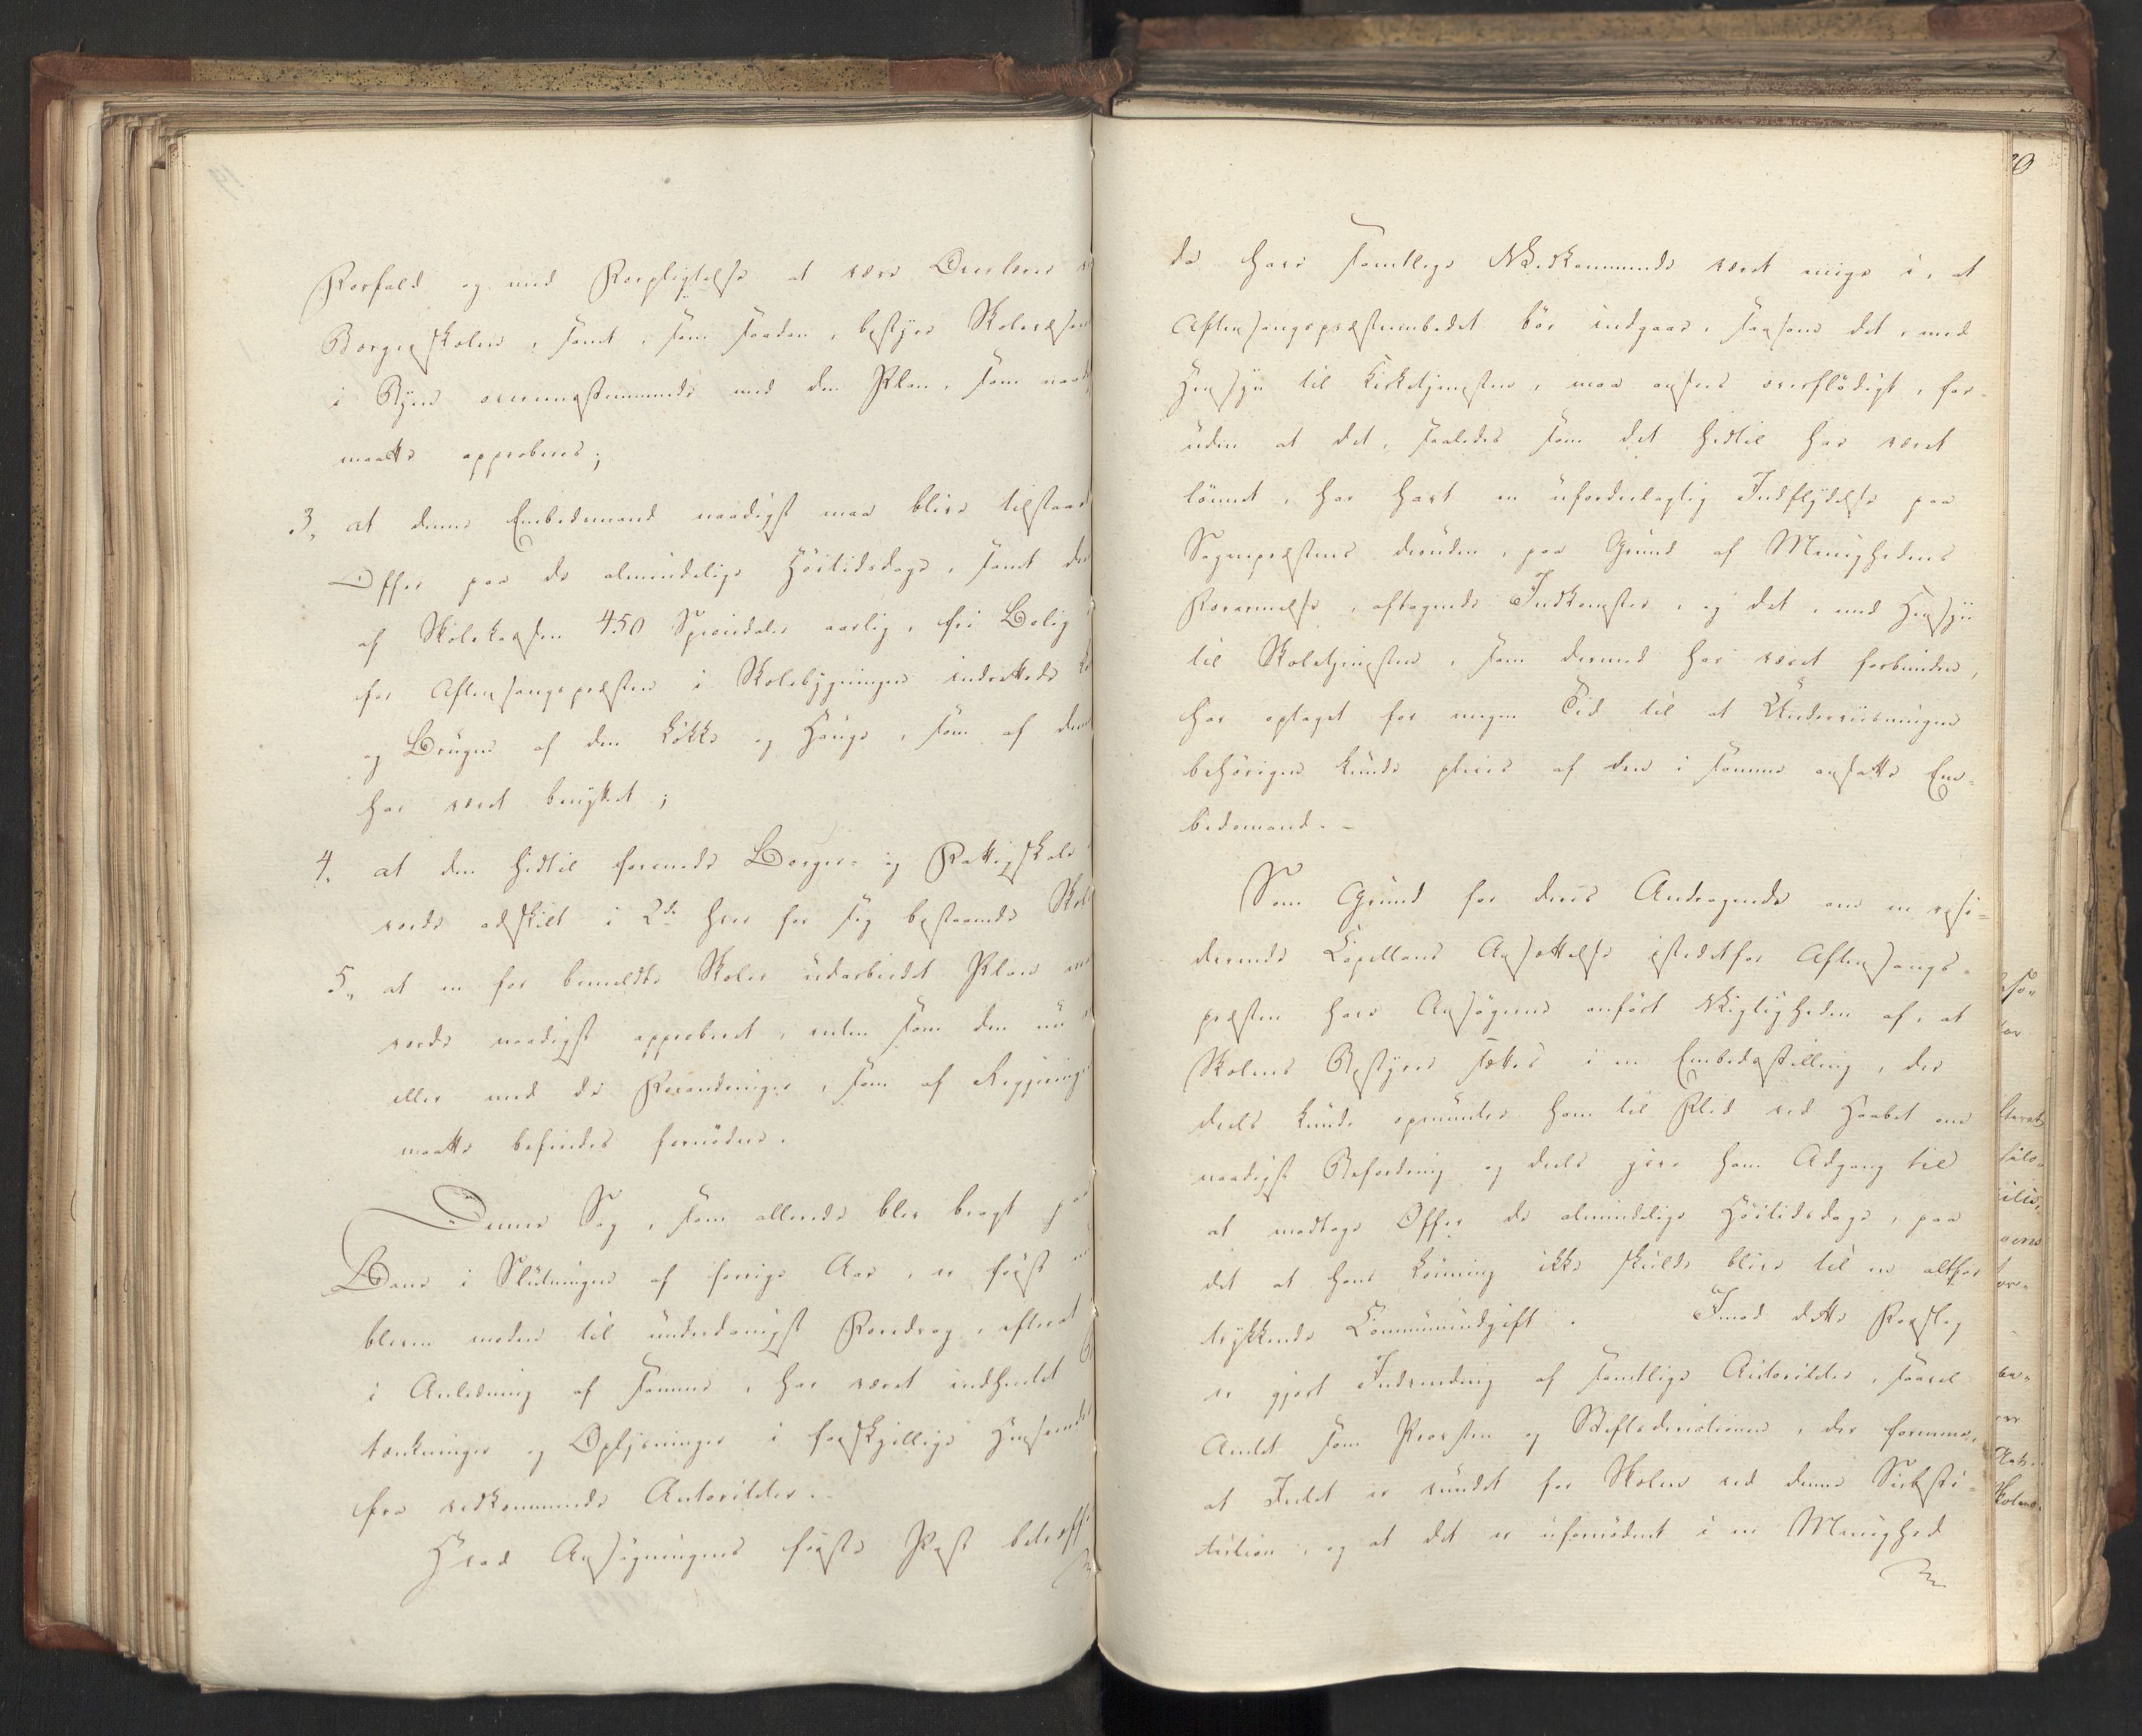 Forfald og med Forpligtelse at være Overlærer v
Borgerskolen, samt, som saadan, bestyre Skolevæsen
i Byen overeensstemmende med den Plan, som naad
maatte approberes;
3, at denne Embedsmand naadigst maa blive tilstaaet
Offer paa de almindelige Høitidsdage, samt der
af Skolekassen 450 Speciedaler aarlig, fri Bolig
for Aftensangspræsten i Skolebygningen indrettede
og Brugen af den Løkke og Hauge, som af den
har været benyttet;
4, at den hidtil forenede Borger- og Fattigskole
vorde adskilt i 2de hver for sig bestaaende Skol
5, at en for bemeldte Skoler udarbeidet Plan
vorde naadigst approberet, enten som den nu
eller med de Forandringer, som af Regjeringen
maatte befindes fornødne.
Denne Sag, som allerede blev bragt paa
Bane i Slutningen af forrige Aar, er først
bleven moden til underdanigst Foredrag, efterat
i Anledning af samme, har været indhentet B
tænkninger og Oplysninger i forskjellige Henseende
fra vedkommende Autoriteter.
Hvad Ansøgningens første Post betræff
20
da have samtlige Vedkommende været enige i, at
Aftensangspræsteembedet bør indgaae, saasom det, med
Hensyn til Kirketjenesten, maa ansees overflødigt, for-
uden at det, saaledes som det hidtil har været
lønnet, har havt en ufordeelagtig Indflydelse paa
Sognepræstens desuden, paa Grund af Menighedens
Forarmelse, aftagende Indkomster, og det, med Hensyn
til Skoletjenesten, som dermed har været forbunden,
har optaget for megen Tid til at Underviisningen
behørigen kunde pleies af den i samme ansatte Em-
bedsmand. -
Som Grund for deres Andragende om en resi-
derende Capellans Ansættelse istedetfor Aftensangs-
præsten have Ansøgerne anført Vigtigheden af, at
Skolens Bestyrer sættes i en Embedsstilling, der
deels kunde opmuntre ham til Flid ved Haabet om
naadigst Befordring og deels give ham Adgang til
at modtage Offer de almindelige Høitidsdage, paa
det at hans Lønning ikke skulde blive til en altfor
trykkende Communeudgift. Imod dette Forslag
er gjort Indvending af samtlige Autoriteter, saavel
Amtet som Provsten og Stiftsdirectionen, der formene,
at Intet er vundet for Skolen ved denne Substi-
tution, og at det er ufornødent i en Menighed